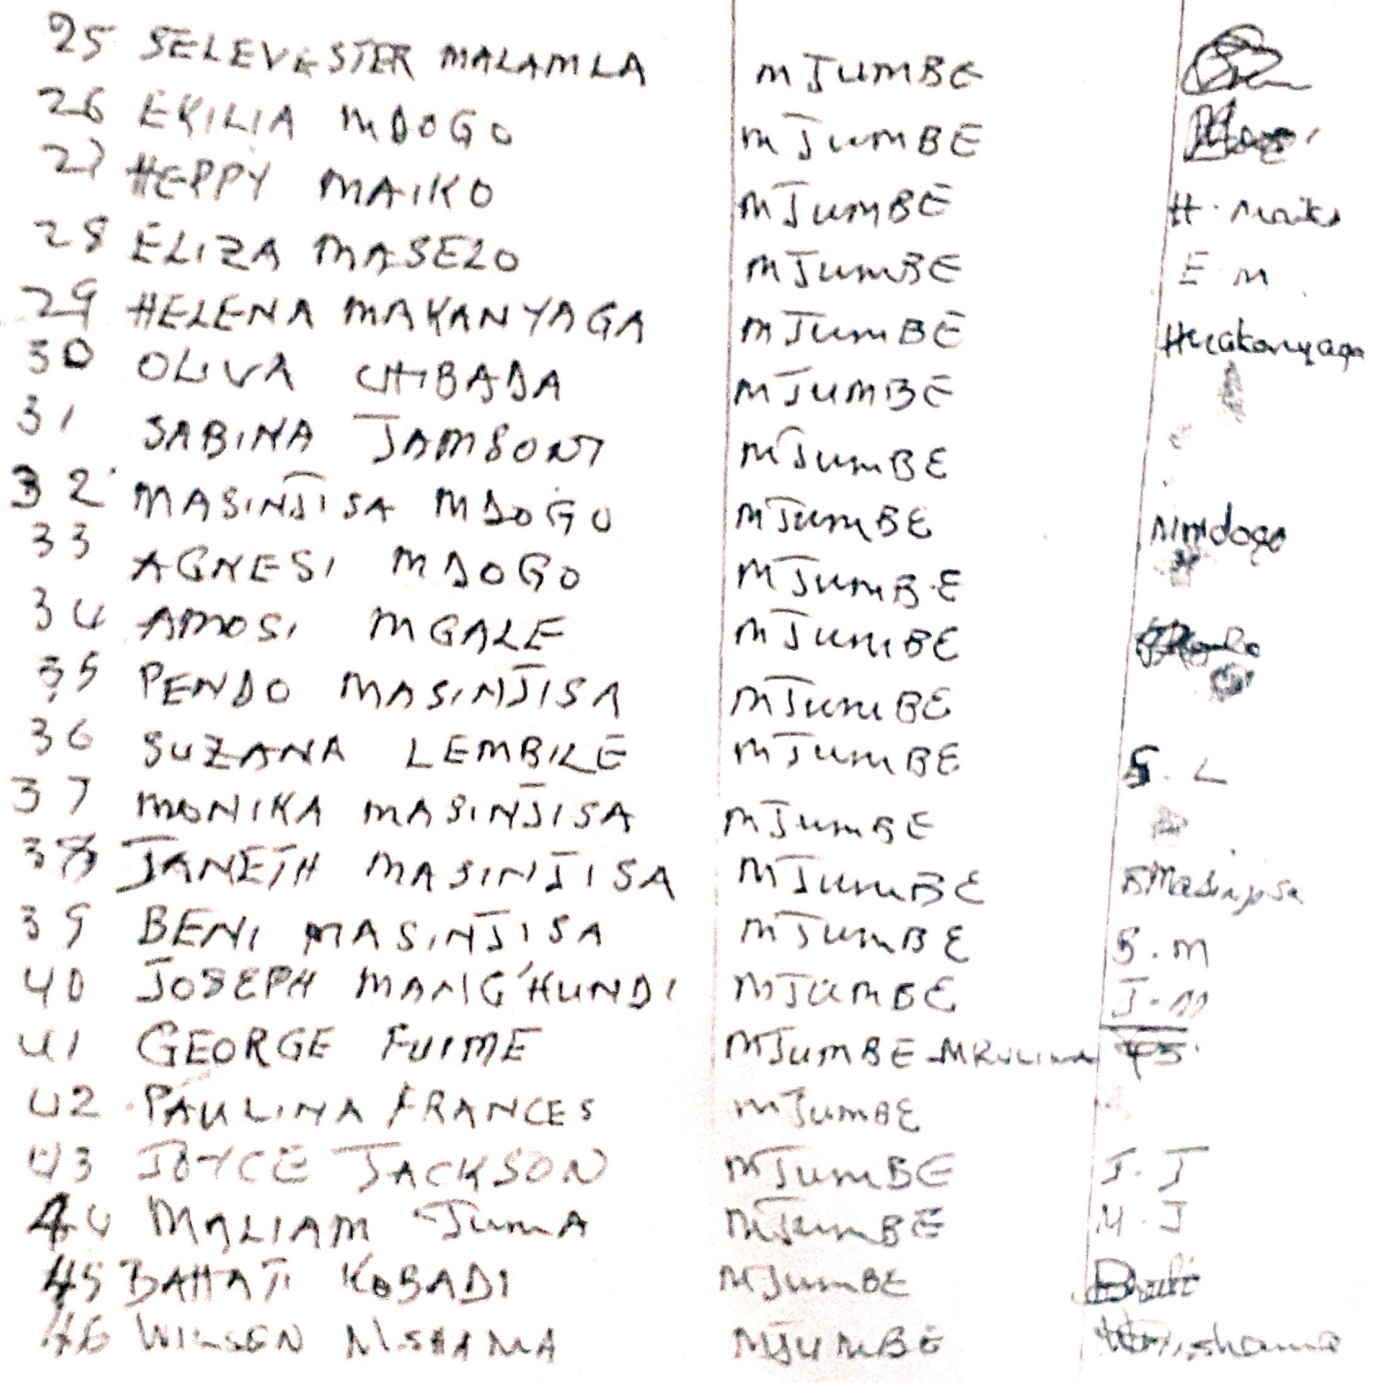 25 SELEVESTER MALAMLA MJUMBE
26 EKILIA MDOGO MJUMBE
27 HEPPY MAIKO MJUMBE H. Maiko
28 ELIZA MASELO MJUMBE E M
29 HELENA MAKANYAGA MJUMBE Hmakanyaga
30 OLIVA CHIBADA MJUMBE
31 SABINA JAMSONI MJUMBE
32 MASINJISA MDOGO MJUMBE Mmdogo
33 AGNESI MDOGO MJUMBE
34 AMOSI MGALE MJUMBE
35 PENDO MASINJISA MJUMBE
36 SUZANA LEMBILE MJUMBE S. L
37 MONIKA MASINJISA MJUMBE
38 JANETH MASINJISA MJUMBE Masinjisa
39 BENI MASINJISA MJUMBE B. M
40 JOSEPH MANG'HUNDI MJUMBE J. M
41 GEORGE FUIME MJUMBE-MKULIMA
42 PAULINA FRANCES MJUMBE
43 JOYCE JACKSON MJUMBE J. J
44 MALIAM JUMA MJUMBE M. J
45 BAHATI KOBADI MJUMBE
46 WILSON MSHAMA MJUMBE